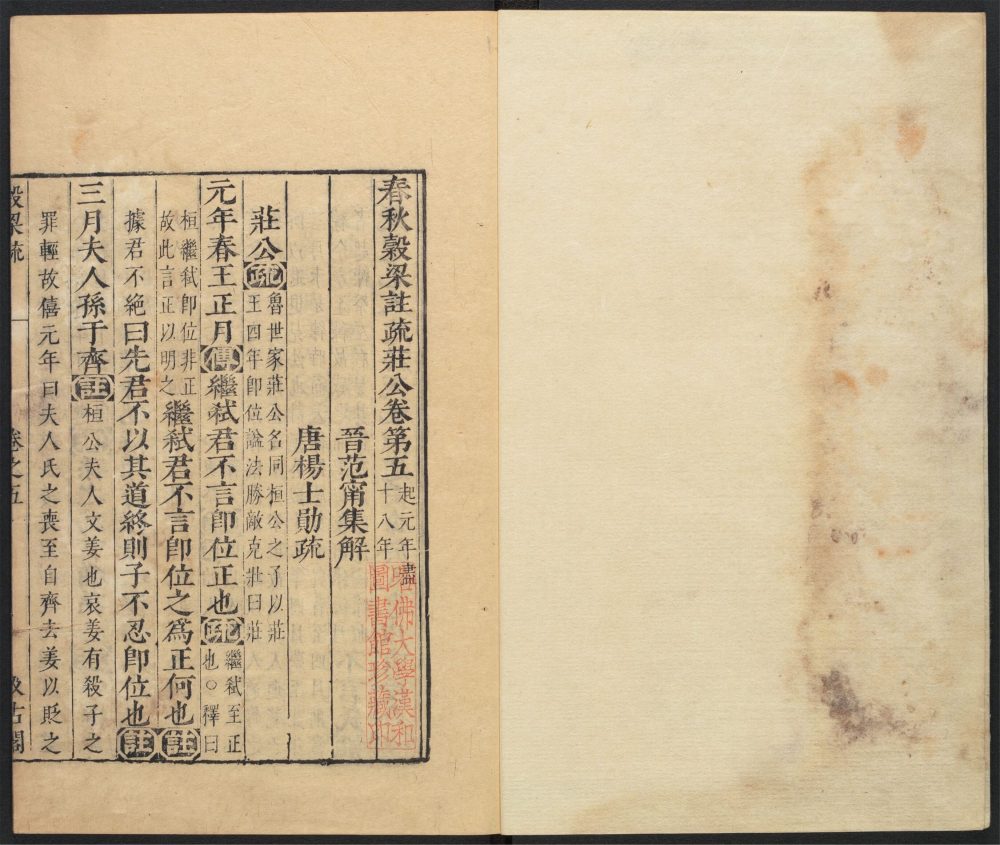 春秋穀梁註疏莊公卷第五 起元年盡十八年
晉范甯集解
唐楊士勛疏
莊公 疏 魯世家莊公名同桓公之子以莊王四年即位諡法勝敵克壯曰莊
元年春王正月 傳 繼弑君不言即位正也 疏 繼弑至正也○釋曰
桓繼弑即位非正故此言正以明之 繼弑君不言即位之為正何也 註
據君不絕 曰先君不以其道終則子不忍即位也 註
三月夫人孫于齊 註 桓公夫人文姜也哀姜有殺子之
罪輕故僖元年曰夫人氏之喪至自齊去姜以貶之
穀梁疏 卷之五 汲古閣
哈佛大學漢和圖書館珍藏印